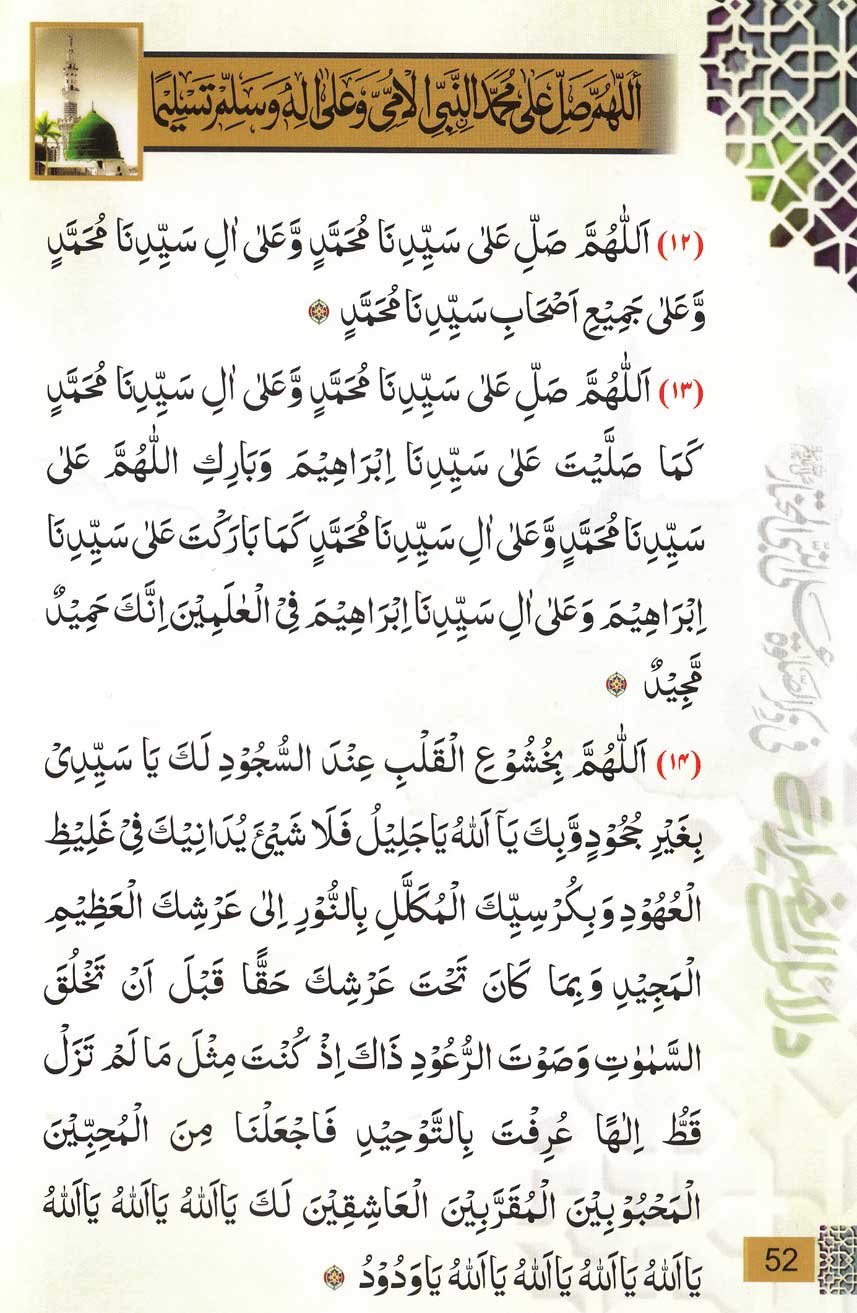 اَللّٰهُمَّ صَلِّ عَلٰى مُحَمَّدِ النَّبِيِّ الْاُمِّيِّ وَعَلٰى اٰلِهٖ وَسَلِّمْ تَسْلِيْمًا
(۱۲) اَللّٰهُمَّ صَلِّ عَلٰى سَيِّدِنَا مُحَمَّدٍ وَّعَلٰى اٰلِ سَيِّدِنَا مُحَمَّدٍ
وَّعَلٰى جَمِيْعِ اَصْحَابِ سَيِّدِنَا مُحَمَّدٍ
(۱۳) اَللّٰهُمَّ صَلِّ عَلٰى سَيِّدِنَا مُحَمَّدٍ وَّعَلٰى اٰلِ سَيِّدِنَا مُحَمَّدٍ
كَمَا صَلَّيْتَ عَلٰى سَيِّدِنَا اِبْرَاهِيْمَ وَبَارِكِ اللّٰهُمَّ عَلٰى
سَيِّدِنَا مُحَمَّدٍ وَّعَلٰى اٰلِ سَيِّدِنَا مُحَمَّدٍ كَمَا بَارَكْتَ عَلٰى سَيِّدِنَا
اِبْرَاهِيْمَ وَعَلٰى اٰلِ سَيِّدِنَا اِبْرَاهِيْمَ فِى الْعٰلَمِيْنَ اِنَّكَ حَمِيْدٌ
مَّجِيْدٌ
(۱۴) اَللّٰهُمَّ بِخُشُوْعِ الْقَلْبِ عِنْدَ السُّجُوْدِ لَكَ يَا سَيِّدِىْ
بِغَيْرِ جُحُوْدٍ وَّبِكَ يَآ اَللهُ يَا جَلِيْلُ فَلَا شَيْئَ يُدَانِيْكَ فِىْ غَلِيْظِ
الْعُهُوْدِ وَبِكُرْسِيِّكَ الْمُكَلَّلِ بِالنُّوْرِ اِلٰى عَرْشِكَ الْعَظِيْمِ
الْمَجِيْدِ وَبِمَا كَانَ تَحْتَ عَرْشِكَ حَقًّا قَبْلَ اَنْ تَخْلُقَ
السَّمٰوٰتِ وَصَوْتَ الرُّعُوْدِ ذَاكَ اِذْ كُنْتَ مِثْلَ مَا لَمْ تَزَلْ
قَطُّ اِلٰهًا عُرِفْتَ بِالتَّوْحِيْدِ فَاجْعَلْنَا مِنَ الْمُحِبِّيْنَ
الْمَحْبُوْبِيْنَ الْمُقَرَّبِيْنَ الْعَاشِقِيْنَ لَكَ يَا اَللهُ يَا اَللهُ يَا اَللهُ
يَا اَللهُ يَا اَللهُ يَا اَللهُ يَا اَللهُ يَا وَدُوْدُ
دلائل الخيرات
52